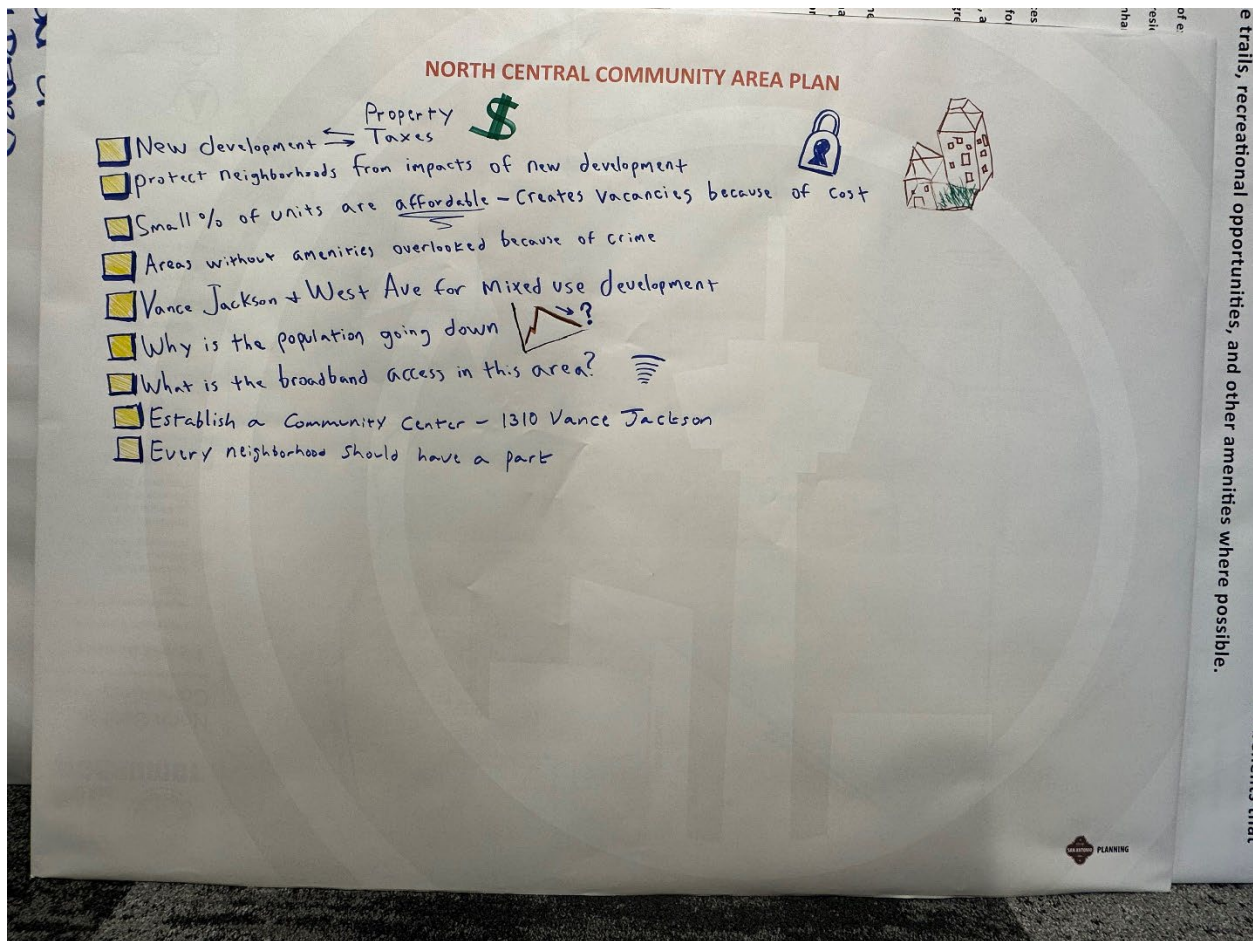 NORTH CENTRAL COMMUNITY AREA PLAN
New development ⇆ Property Taxes $
protect neighborhoods from impacts of new development
Small % of units are affordable - Creates vacancies because of cost
Areas without ameniries overlooked because of crime
Vance Jackson & West Ave for Mixed use development
Why is the population going down ?
What is the broadband access in this area?
Establish a Community Center - 1310 Vance Jackson
Every neighborhood should have a park
SAN ANTONIO PLANNING
e trails, recreational opportunities, and other amenities where possible.